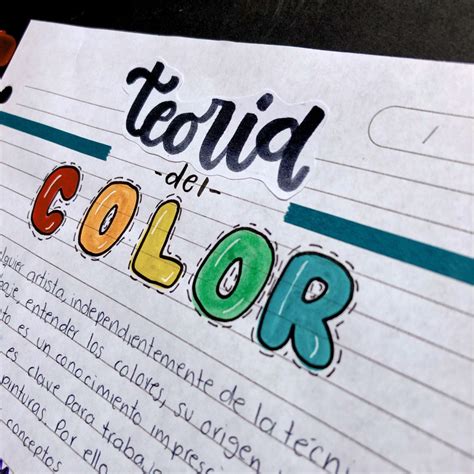 Teoria
-del-
COLOR
artista, independientemente de la técni
entender los colores, su origen
es un conocimiento impres
es clave para trabaja
pinturas. Por ello
conceptos